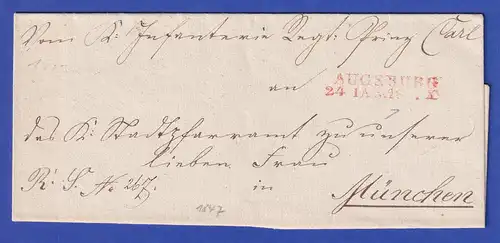 Vom K: Infanterie Regt: Prinz Carl
an
AUGSBURG
24 IAN.
des K: Stadtpfarramt zu unserer
lieben Frau
R: S. No
in
München